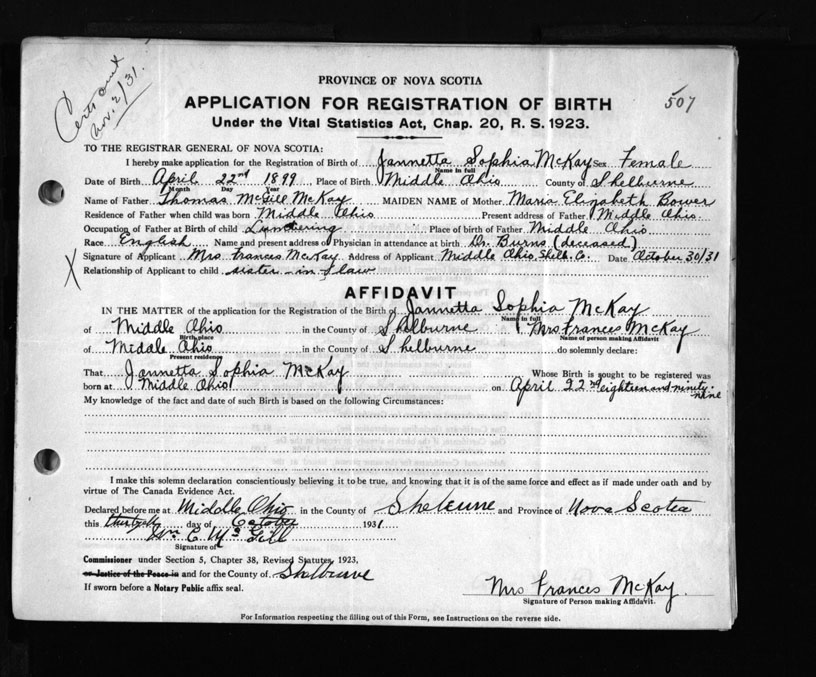 Certs sent
Nov. 2/31.
PROVINCE OF NOVA SCOTIA
APPLICATION FOR REGISTRATION OF BIRTH
507
Under the Vital Statistics Act, Chap. 20, R. S. 1923.
TO THE REGISTRAR GENERAL OF NOVA SCOTIA:
I hereby make application for the Registration of Birth of Jannetta Sophia McKay Sex Female
Name in full
Date of Birth April 22nd 1899 Place of Birth Middle Ohio County of Shelburne
Month Day Year
Name of Father Thomas McGill McKay MAIDEN NAME of Mother Maria Elizabeth Bower
Residence of Father when child was born Middle Ohio Present address of Father Middle Ohio.
Occupation of Father at Birth of child Lumbering Place of birth of Father Middle Ohio.
Race English Name and present address of Physician in attendance at birth Dr. Burns (deceased)
X Signature of Applicant Mrs Frances McKay Address of Applicant Middle Ohio, Shelb. Co. Date October 30/31
Relationship of Applicant to child sister-in-law
AFFIDAVIT
IN THE MATTER of the application for the Registration of the Birth of Jannetta Sophia McKay
Name in full
of Middle Ohio in the County of Shelburne Mrs Frances McKay
Birth place Name of person making Affidavit
of Middle Ohio in the County of Shelburne do solemnly declare:
Present residence
That Jannetta Sophia McKay Whose Birth is sought to be registered was
born at Middle Ohio on April 22nd eighteen and ninity-
nine
My knowledge of the fact and date of such Birth is based on the following Circumstances:
I make this solemn declaration conscientiously believing it to be true, and knowing that it is of the same force and effect as if made under oath and by
virtue of The Canada Evidence Act.
Declared before me at Middle Ohio in the County of Shelburne and Province of Nova Scotia
this day of October 1931
Wm C McGill
Signature of
Commissioner under Section 5, Chapter 38, Revised Statutes, 1923,
or Justice of the Peace in and for the County of Shelburne
If sworn before a Notary Public affix seal.
Mrs Frances McKay.
Signature of Person making Affidavit.
For Information respecting the filling out of this Form, see Instructions on the reverse side.